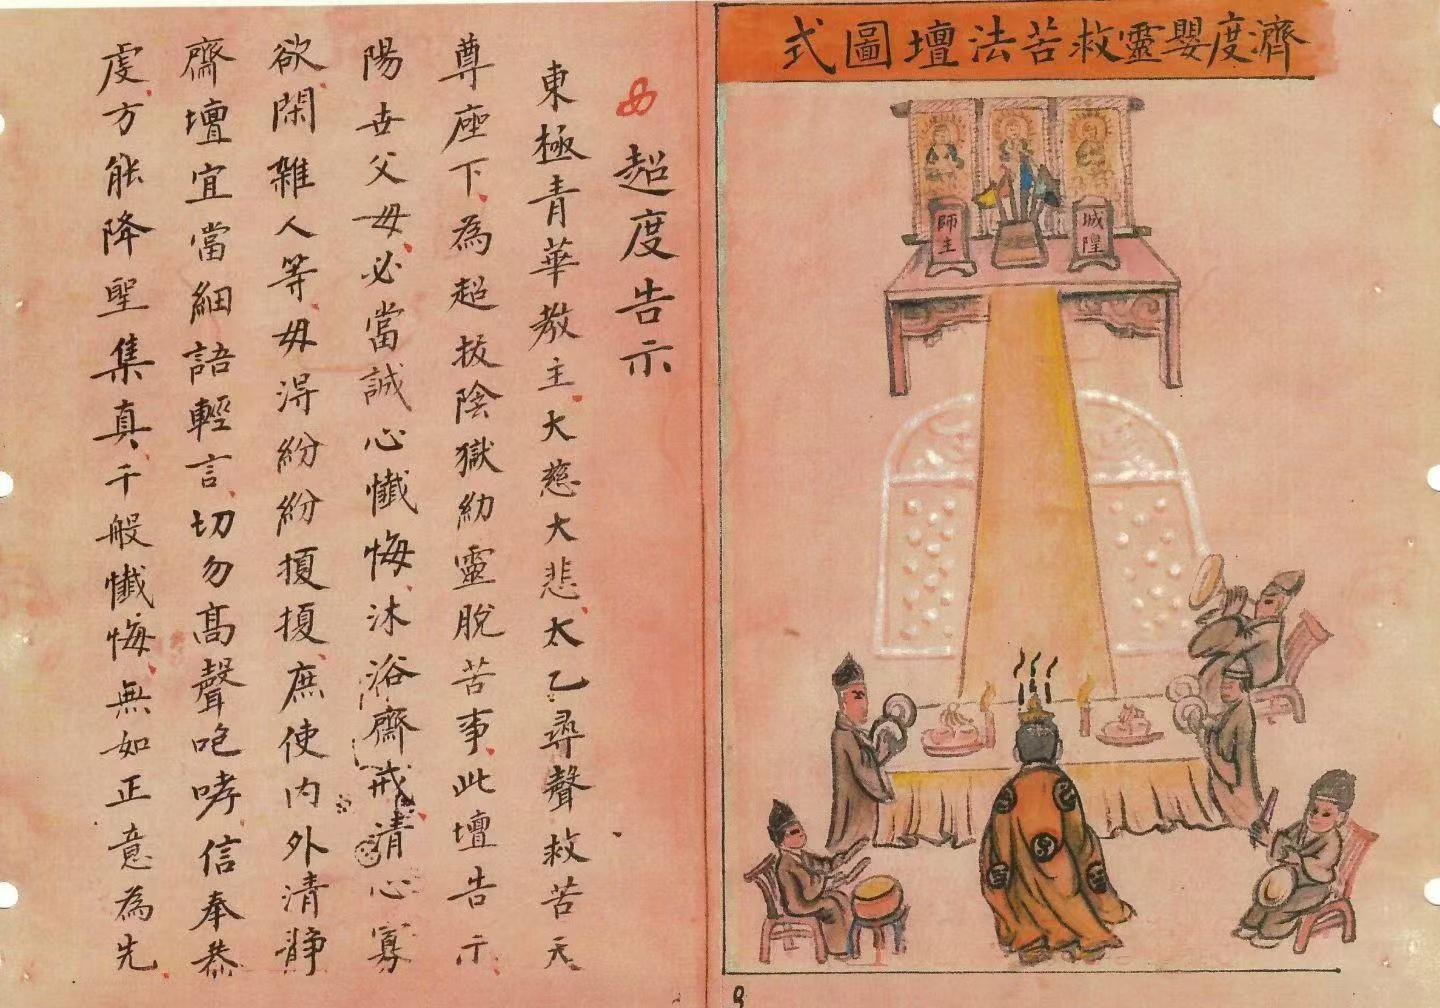 濟度嬰靈救苦法壇圖式
師主
城隍
超度告示
東極青華教主大慈大悲太乙尋聲救苦天
尊座下為超拔陰獄幼靈脫苦事此壇告示
陽世父母必當誠心懺悔沐浴齋戒清心寡
欲閑雜人等毋得紛紛擾擾庶使內外清靜
齋壇宜當細語輕言切勿高聲咆哮信奉恭
虔方能降聖集真千般懺悔無如正意為先
9